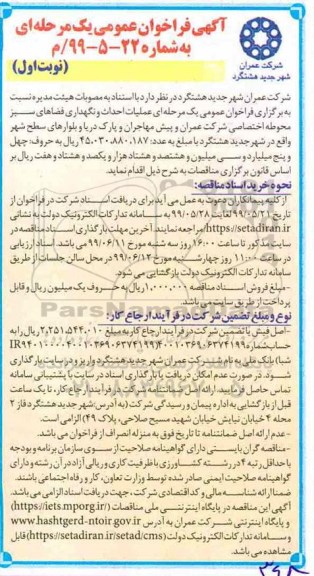 آگهی فراخوان عمومی یک مرحله‌ای
به شماره ۲۲-۵-۹۹/م
(نوبت اول)
شرکت عمران
شهر جدید هشتگرد
شرکت عمران شهر جدید هشتگرد در نظر دارد با استناد به مصوبات هیئت مدیره نسبت
به برگزاری فراخوان عمومی یک مرحله‌ای عملیات احداث و نگهداری فضاهای سبز
محوطه اختصاصی شرکت عمران و پیش مهاجران و پارک دریا و بلوارهای سطح شهر
واقع در شهر جدید هشتگرد با مبلغ به عدد: ۴۵.۰۳۰.۸۸۰.۱۸۷ ریال به حروف: چهل
و پنج میلیارد و سی میلیون و هشتصد و هشتاد هزار و یکصد و هشتاد و هفت ریال بر
اساس قانون برگزاری مناقصات به شرح ذیل اقدام نماید.
نحوه خرید اسناد مناقصه:
از کلیه پیمانکاران دعوت به عمل می آید برای دریافت اسناد شرکت در فراخوان از
تاریخ ۹۹/۰۵/۲۱ لغایت ۹۹/۰۵/۲۸ به سامانه تدارکات الکترونیک دولت به نشانی
https://setadiran.ir/ مراجعه نمایند. آخرین مهلت بارگذاری اسناد مناقصه در
سایت مذکور تا ساعت ۱۶:۰۰ روز سه شنبه مورخ ۹۹/۰۶/۱۱ می باشد. اسناد ارزیابی
در ساعت ۱۱:۰۰ روز چهارشنبه مورخ ۹۹/۰۶/۱۲ در محل سالن جلسات از طریق
سامانه تدارکات الکترونیک دولت بازگشایی می شود.
-مبلغ فروش اسناد مناقصه ۱,۰۰۰,۰۰۰ ریال به حروف یک میلیون ریال و قابل
پرداخت از طریق سایت می باشد.
نوع و مبلغ تضمین شرکت در فرآیند ارجاع کار:
-اصل فیش یا تضمین شرکت در فرآیند ارجاع کار به مبلغ ۲.۲۵۱.۵۴۴.۰۱۰ ریال را به
شبا) بانک ملی به نام شرکت عمران شهر جدید هشتگرد واریز و در سایت بارگذاری
شود. در صورت عدم امکان دریافت یا بارگذاری اسناد در سایت با پشتیبانی سامانه
تماس حاصل فرمایید. ارائه اصل ضمانتنامه شرکت در فرآیند ارجاع کار، تا یک ساعت
قبل از بازگشایی به اداره پیمان و رسیدگی شرکت (به آدرس: شهر جدید هشتگرد فاز ۲
محله ۴ خیابان نیایش خیابان شهید مسیح صلاحی، پلاک ۴۹) الزامی است.
-عدم ارائه اصل ضمانتنامه تا تاریخ فوق به منزله انصراف از فراخوان می باشد.
-مناقصه گران بایستی دارای گواهینامه صلاحیت از سوی سازمان برنامه و بودجه
با حداقل رتبه ۴ در رشته کشاورزی با ظرفیت کاری و ریالی آزاد در آن رشته و دارای
گواهینامه صلاحیت ایمنی صادر شده توسط وزارت تعاون، کار و رفاه اجتماعی باشند.
ضمنا ارائه شناسه ملی و کد اقتصادی شرکت، جهت دریافت اسناد الزامی می باشد.
آگهی این مناقصه در پایگاه اینترنتی ملی مناقصات (https://iets.mporg.ir/)
و پایگاه اینترنتی شرکت عمران به آدرس www.hashtgerd-ntoir.gov.ir
و سامانه تدارکات الکترونیک دولت (https://setadiran.ir/setad/cms) قابل
مشاهده می باشد.